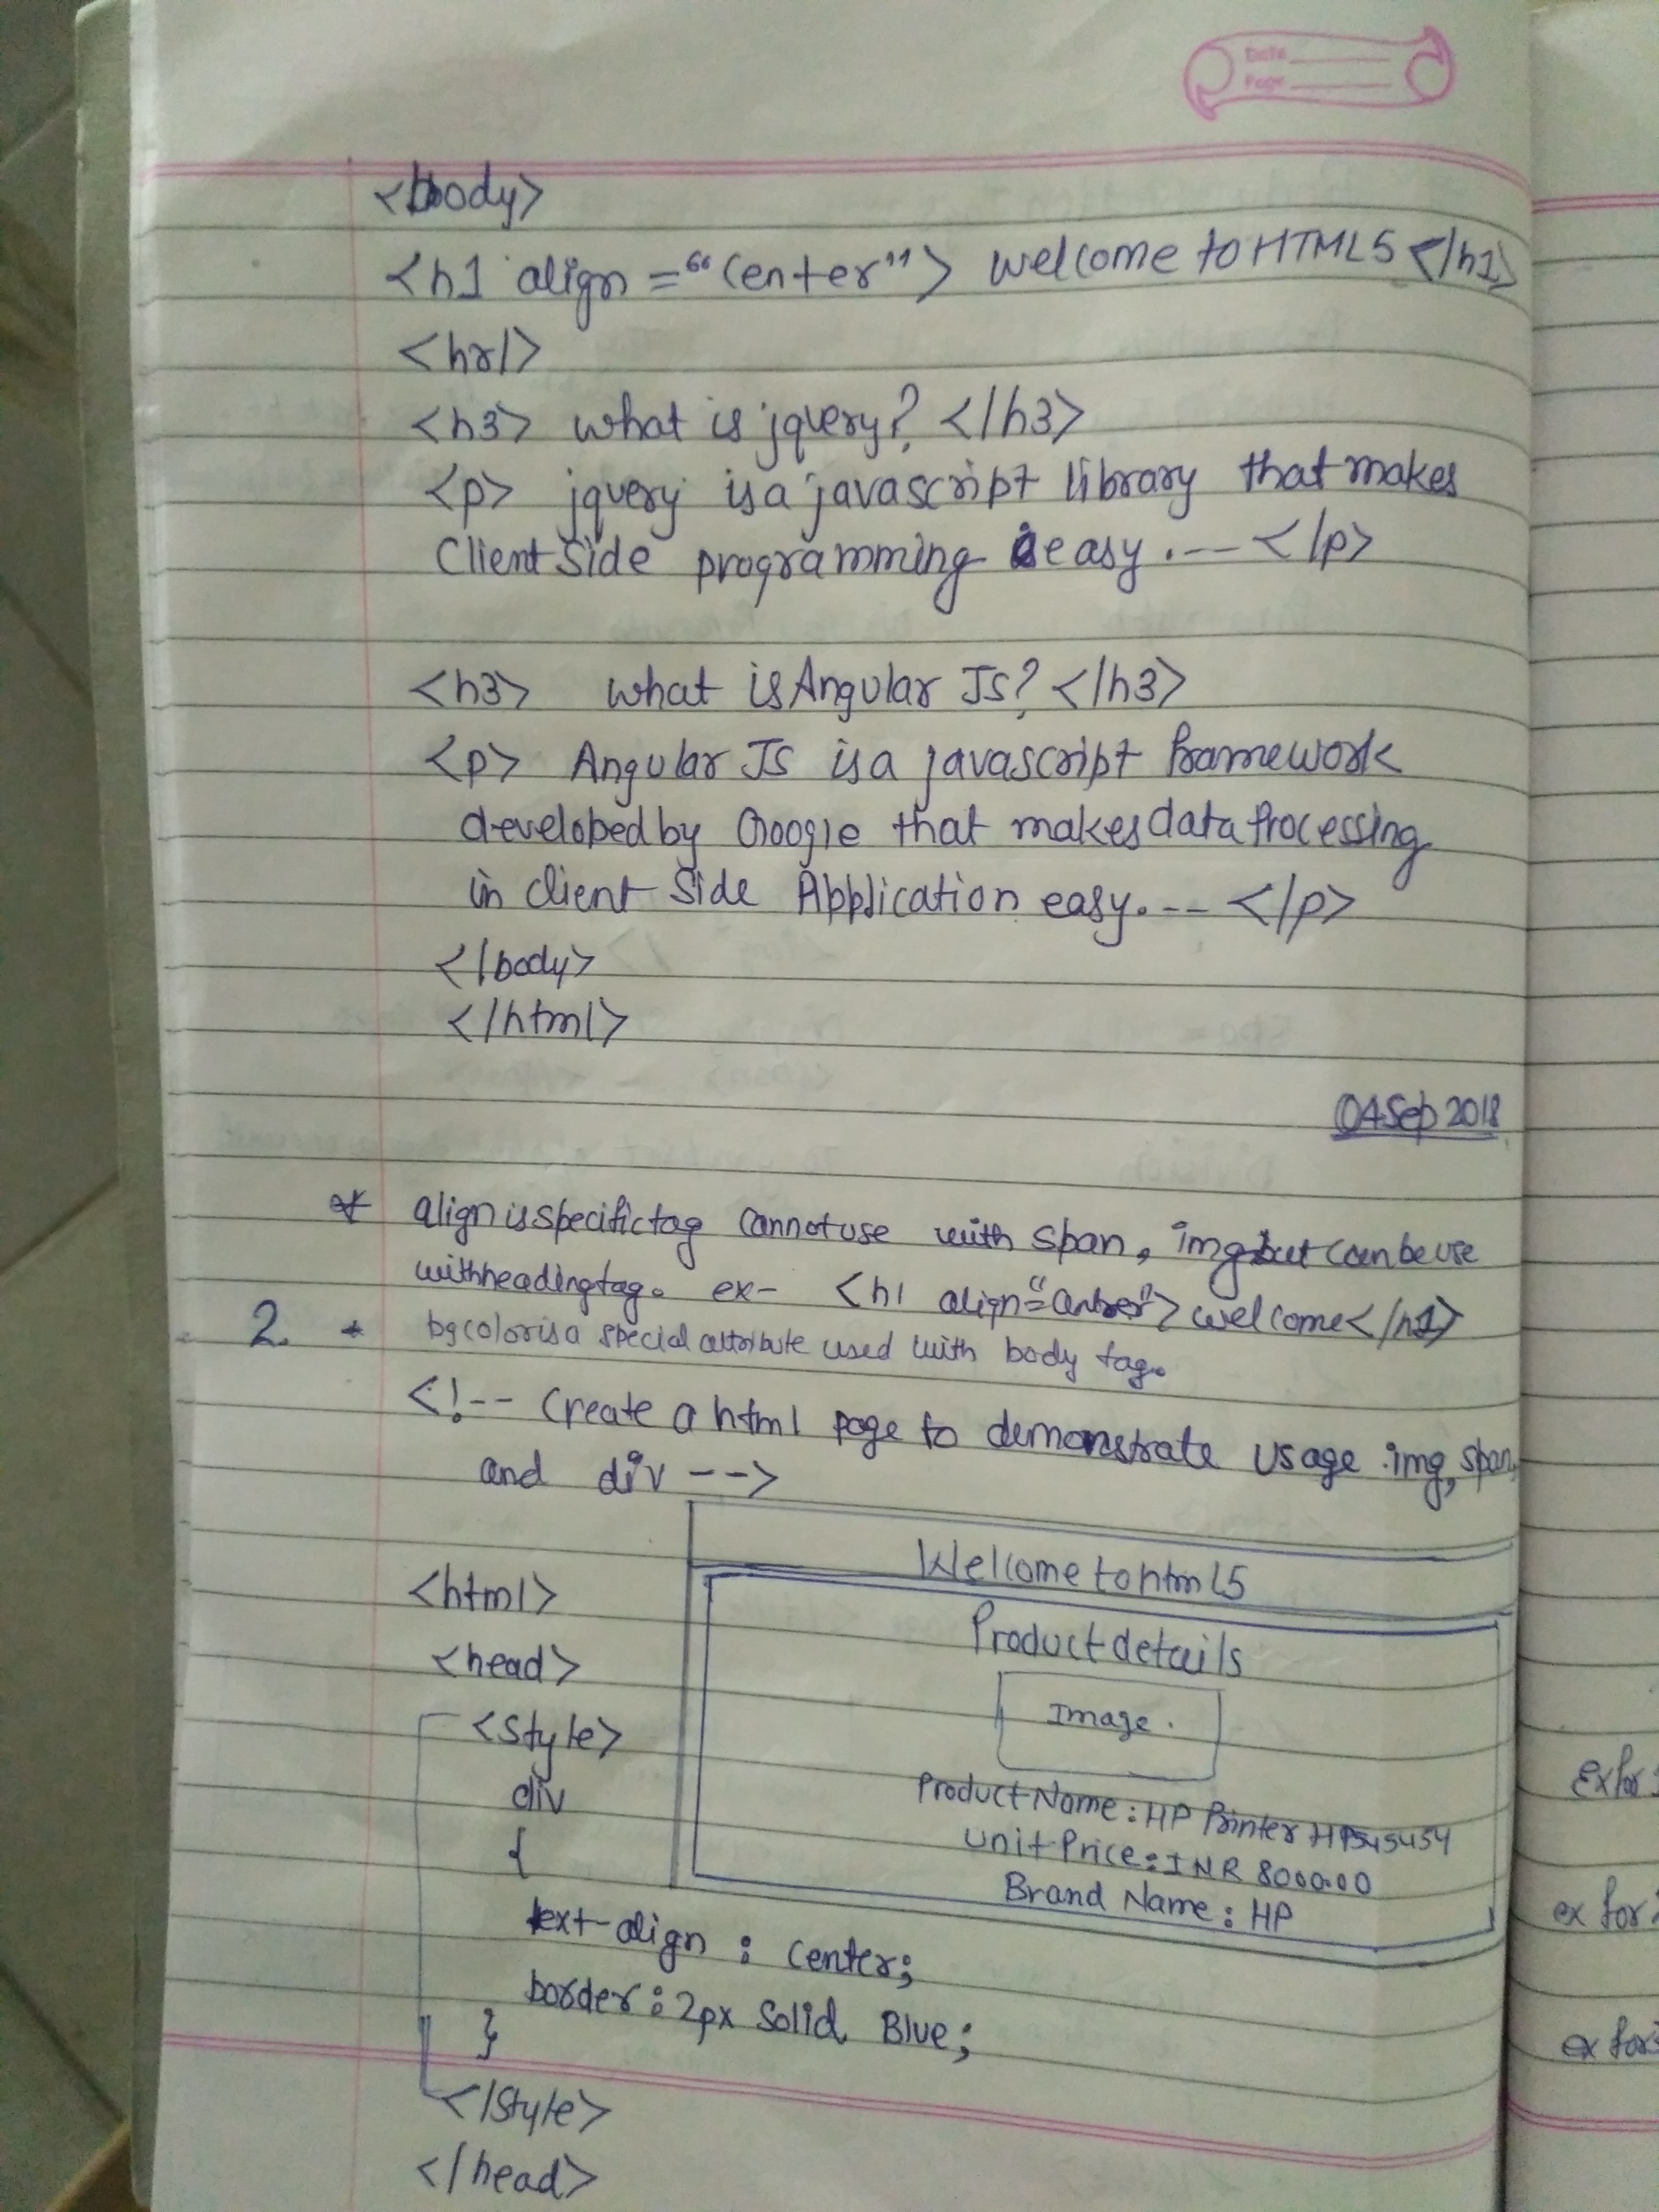 Date
Page
<body>
<h1 align="Center"> Welcome to HTML5 </h1>
<hr/>
<h3> What is jquery? </h3>
<p> jquery is a javascript library that makes
Client Side programming easy.-- </p>
<h3> What is Angular JS? </h3>
<p> Angular JS is a javascript framework
developed by Google that makes data Processing
in client Side Application easy.-- </p>
</body>
</html>
04 Sep 2018
* align is specific tag cannot use with span, img but can be use
with heading tag. ex- <h1 align="center"> welcome </h1>
2. * bgcolor is a special attribute used with body tag.
<!-- Create a html page to demonstrate usage img, span,
and div -->
Wellcome to html5
<html>
Product details
<head>
Image.
<Style>
div
Product Name: HP Printer HP545454
{
Unit Price: INR 8000.00
Brand Name: HP
text-align : Center;
border: 2px Solid Blue;
}
</Style>
</head>
ex for
ex for
ex for